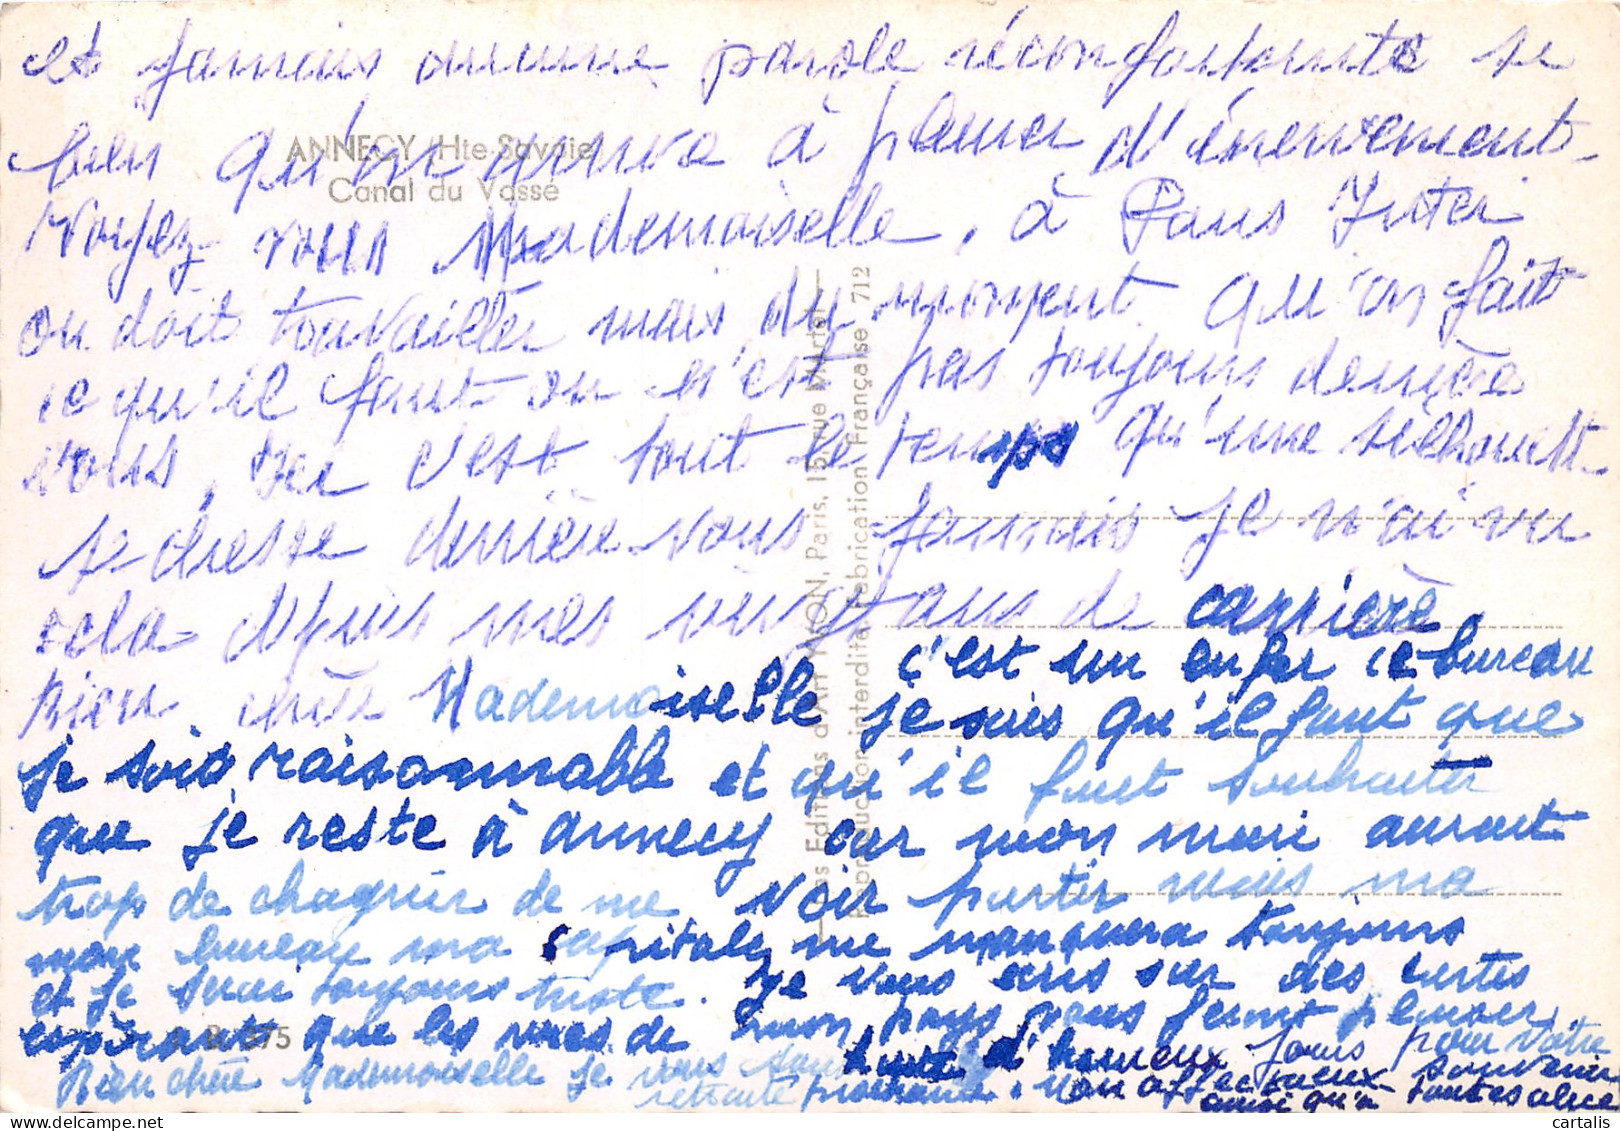 et jamais aucune parole réconfortante si
bien qu'on arrive à pleurer d'énervement.
ANNECY (Hte-Savoie)
Canal du Vassé
Voyez vous Mademoiselle, à Paris Inter
on doit travailler mais du moment qu'on fait
ce qu'il faut on n'est pas toujours derrière
vous, Ici c'est tout le temps qu'une silhouette
se dresse derrière vous jamais je n'ai vu
cela depuis mes vingt ans de carrière
c'est un enfer ce bureau
Bien chère Mademoiselle je sais qu'il faut que
je sois raisonnable et qu'il faut souhaiter
que je reste à annecy car mon mari aurait
trop de chagrin de me voir partir mais ma
mon bureau ma capitale me manquera toujours
et je serai toujours triste. Je vous écris sur des cartes
espérant que les vues de mon pays vous feront plaisir
Bien chère Mademoiselle je vous d'heureux jours pour votre
retraite prochaine. mon affectueux souvenir
ainsi qu'à toutes
Les Editions d'Art YVON, Paris, 15, rue Martel
Reproduction interdite. Fabrication Française 712